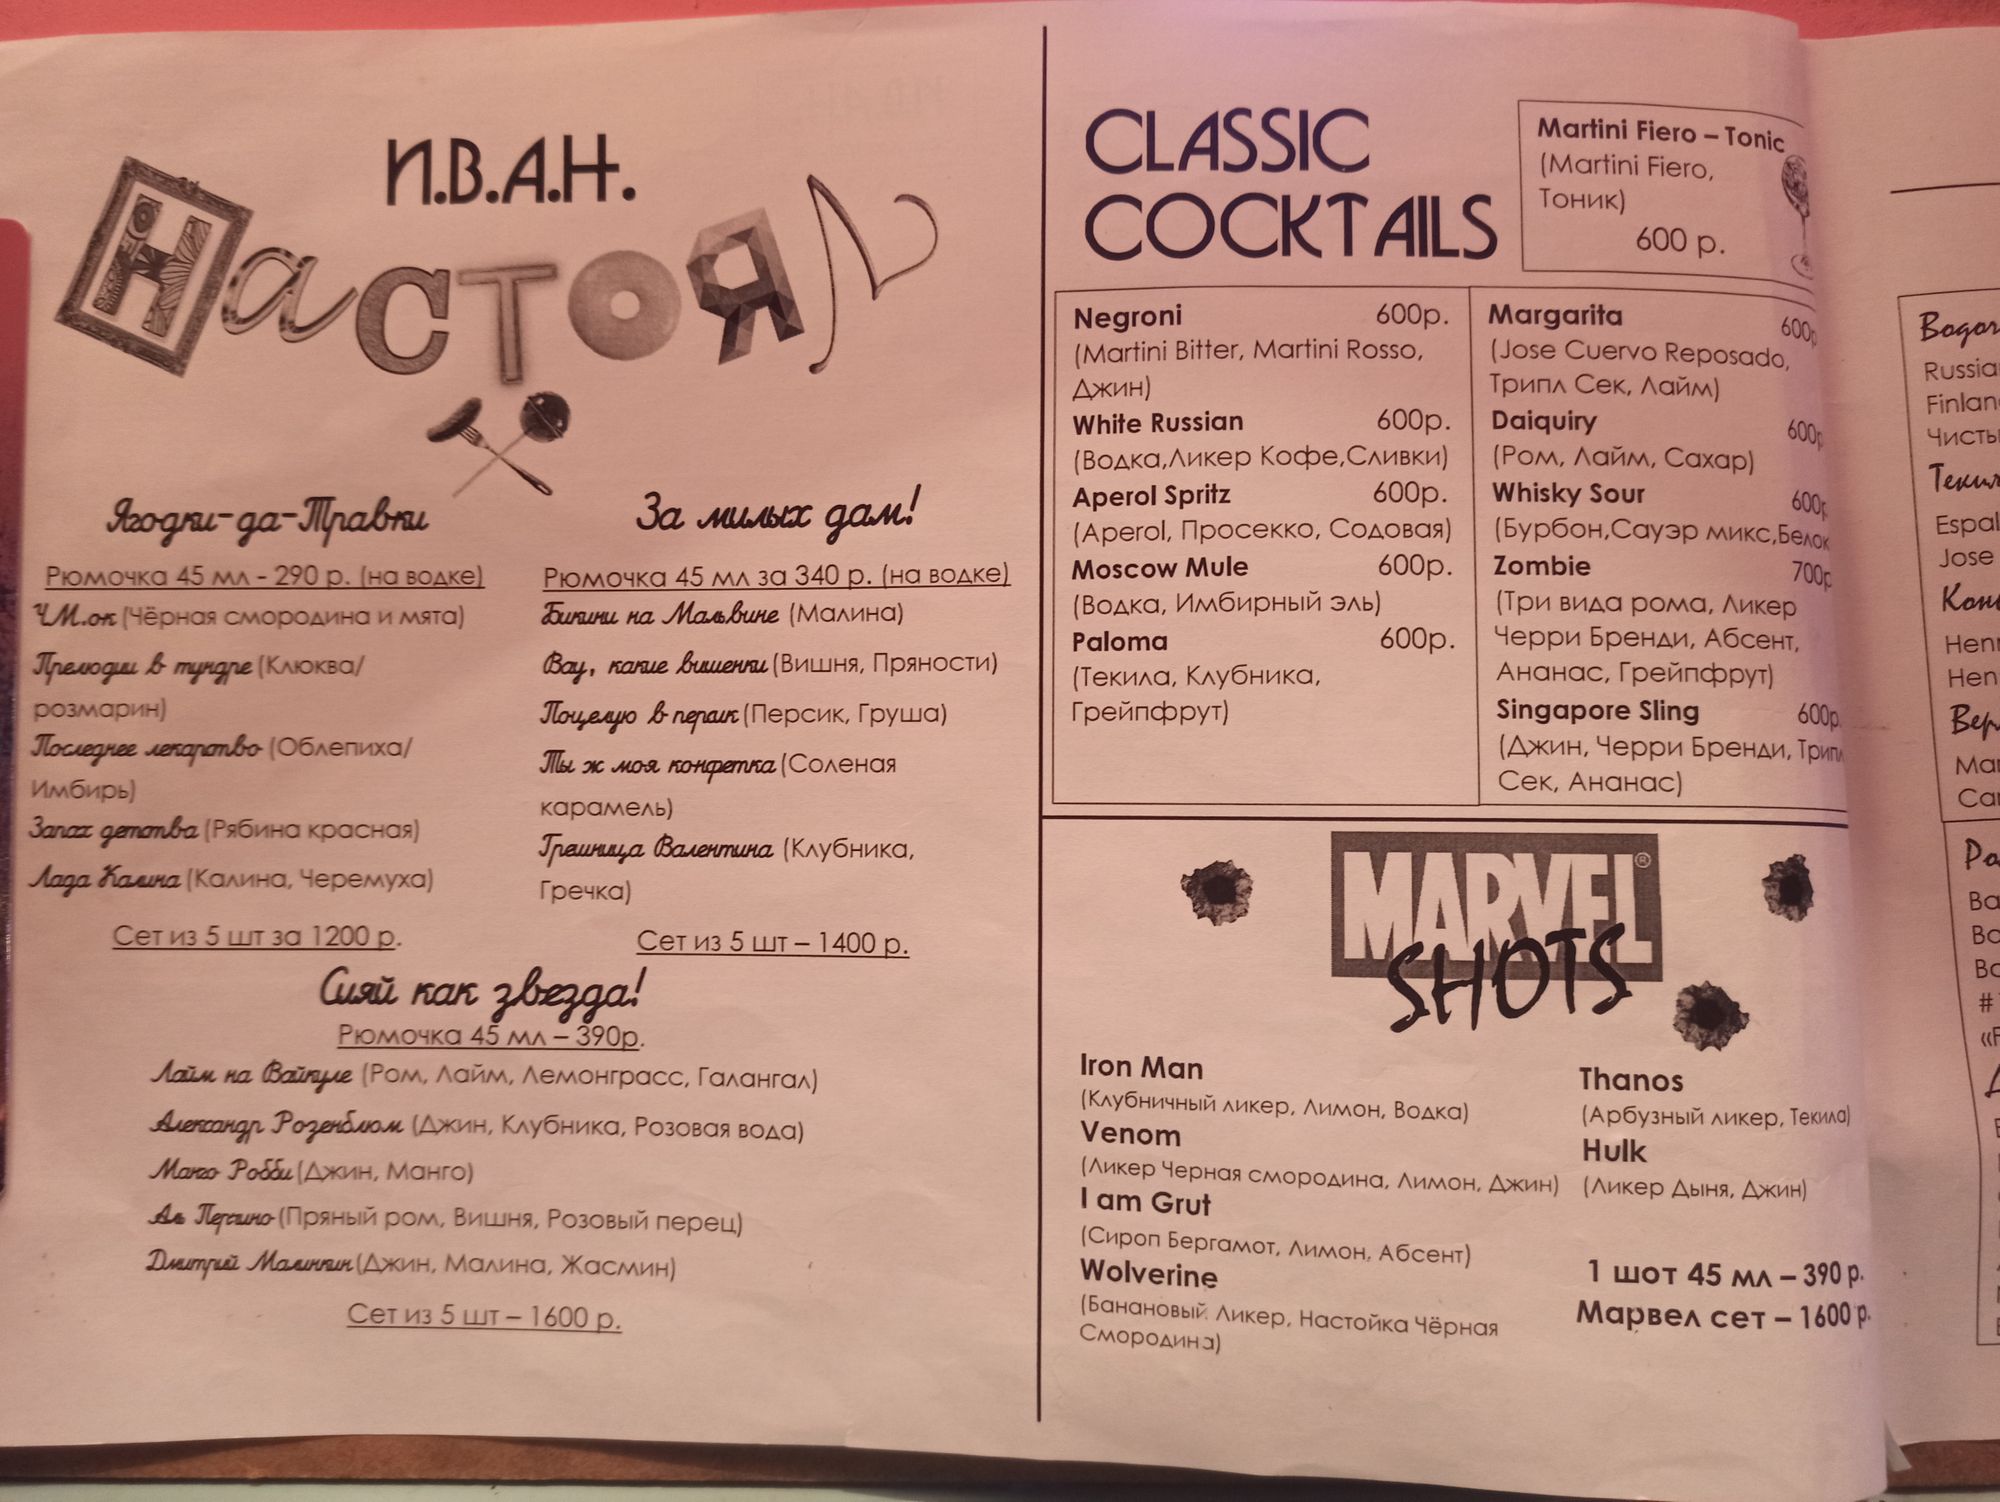 И.В.А.Н.
НаСТОЯЛ
Ягодки-да-Травки
Рюмочка 45 мл - 290 р. (на водке)
Ч.М.ок (Чёрная смородина и мята)
Прелюдии в тундре (Клюква/
розмарин)
Последнее лекарство (Облепиха/
Имбирь)
Запах детства (Рябина красная)
Лада Калина (Калина, Черемуха)
Сет из 5 шт за 1200 р.
За милых дам!
Рюмочка 45 мл за 340 р. (на водке)
Бикини на Мальвине (Малина)
Вау, какие вишенки (Вишня, Пряности)
Поцелую в персик (Персик, Груша)
Ты ж моя конфетка (Соленая
карамель)
Грешница Валентина (Клубника,
Гречка)
Сет из 5 шт – 1400 р.
Сияй как звезда!
Рюмочка 45 мл – 390р.
Лайм на Вайкуле (Ром, Лайм, Лемонграсс, Галангал)
Александр Розенблюм (Джин, Клубника, Розовая вода)
Манго Робби (Джин, Манго)
Аль Персино (Пряный ром, Вишня, Розовый перец)
Дмитрий Малинкин (Джин, Малина, Жасмин)
Сет из 5 шт – 1600 р.
CLASSIC
COCKTAILS
Martini Fiero – Tonic
(Martini Fiero,
Тоник)
600 р.
Negroni 600р.
(Martini Bitter, Martini Rosso,
Джин)
White Russian 600р.
(Водка,Ликер Кофе,Сливки)
Aperol Spritz 600р.
(Aperol, Просекко, Содовая)
Moscow Mule 600р.
(Водка, Имбирный эль)
Paloma 600р.
(Текила, Клубника,
Грейпфрут)
Margarita 600р
(Jose Cuervo Reposado,
Трипл Сек, Лайм)
Daiquiry 600р
(Ром, Лайм, Сахар)
Whisky Sour 600р
(Бурбон,Сауэр микс,Белок
Zombie 700р
(Три вида рома, Ликер
Черри Бренди, Абсент,
Ананас, Грейпфрут)
Singapore Sling 600р
(Джин, Черри Бренди, Трипл
Сек, Ананас)
MARVEL®
SHOTS
Iron Man
(Клубничный ликер, Лимон, Водка)
Venom
(Ликер Черная смородина, Лимон, Джин)
I am Grut
(Сироп Бергамот, Лимон, Абсент)
Wolverine
(Банановый Ликер, Настойка Чёрная
Смородина)
Thanos
(Арбузный ликер, Текила)
Hulk
(Ликер Дыня, Джин)
1 шот 45 мл – 390 р.
Марвел сет – 1600 р.
Russia
Finlan
Чисты
Espal
Jose
Henn
Hen